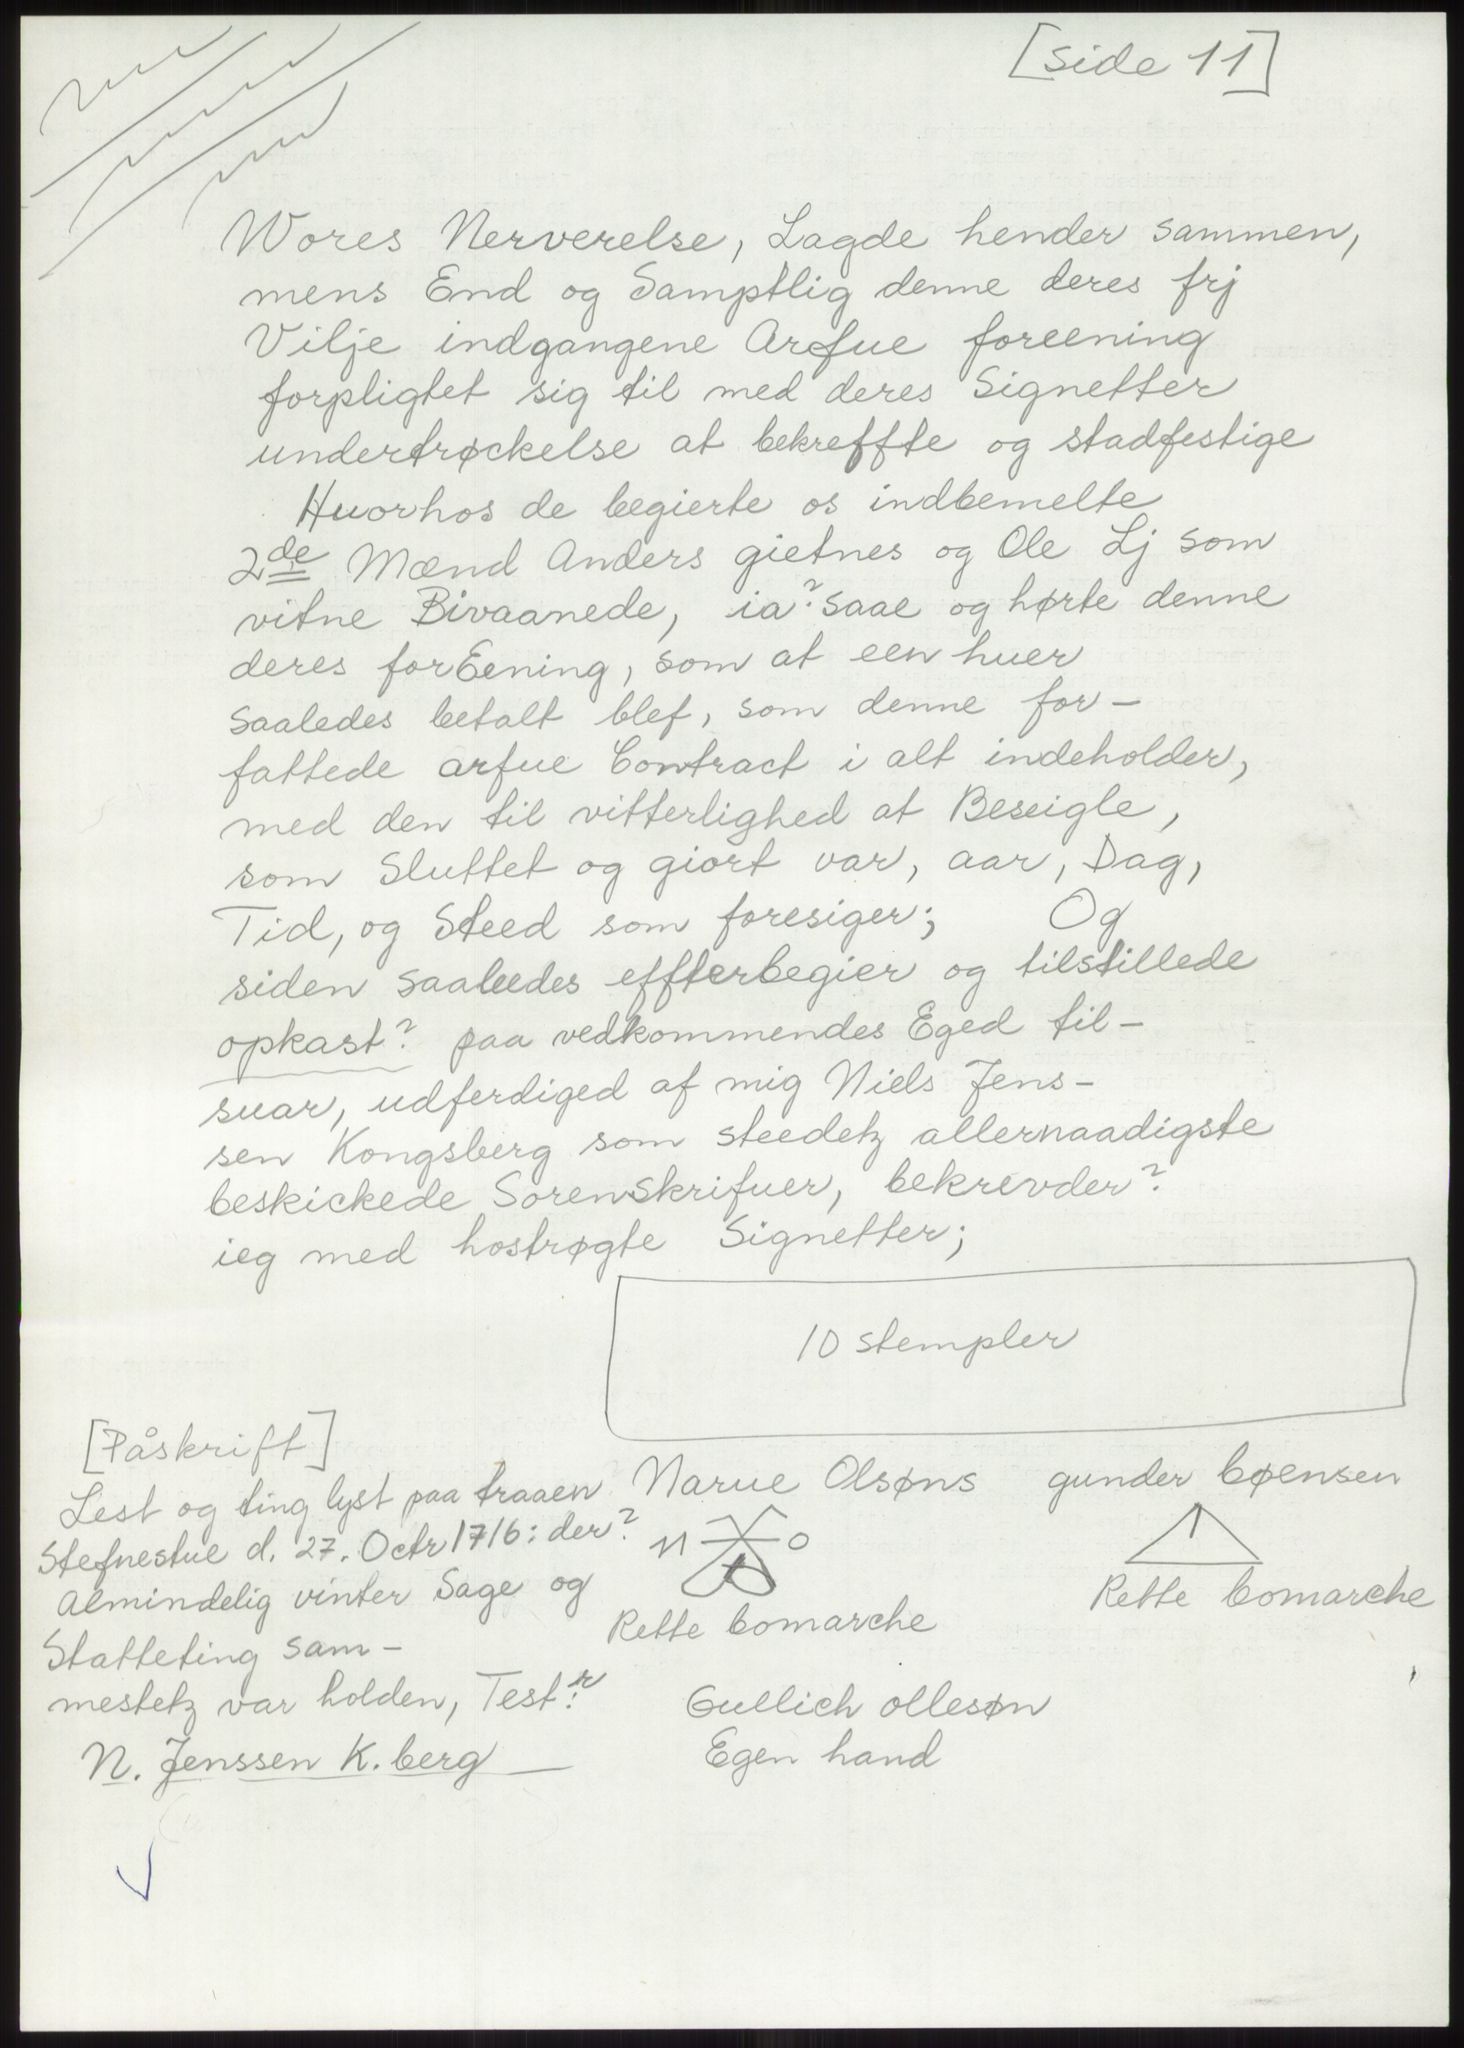 [side 11]
Wores Nerverelse, Lagde hender sammen,
mens End og Samptlig denne deres frj
Vilje indgangene Arfue foreening
forpligtet sig til med deres Signetter
undertrøckelse at bekreffte og stadfestige
Huorhos de begierte os indbemelte
2de Mænd Anders gietnes og Ole Lj som
vitne Bivaanede, ia? saae og hørte denne
deres forEening, som at een huer
saaledes betalt blef, som denne for-
fattede arfue Contract i alt indeholder,
med den til vitterlighed at Beseigle,
som Sluttet og giort var, aar, Dag,
Tid, og Steed som foresiger; Og
siden saaleedes effterbegier og tilstillede
opkast? paa vedkommendes Eged til-
suar, udferdiged af mig Niels Jens-
sen Kongsberg som steedetz allernaadigste
beskickede Sorenskrifuer, bekrevder?
ieg med hostrøgte Signetter;
10 stempler
[Påskrift]
Lest og ting lyst paa traaen
Stefnestue d. 27. Octr 1716: der?
Almindelig vinter Sage og
Statteting sam-
mestetz var holden, Test:r
N. Jenssen K. berg
Narue Olsøns
N O
Rette bomarche
gunder bøensen
Rette bomarche
Gullich ollesøn
Egen hand